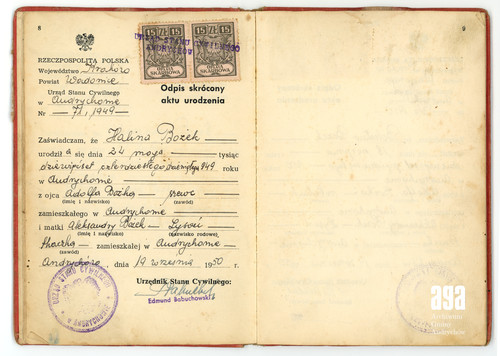 8
9
RZECZPOSPOLITA POLSKA
Województwo Kraków
Powiat Wadowice
Urząd Stanu Cywilnego
w Andrychowie
Nr 71/1949
15 ZŁ 15
15 ZŁ 15
OPŁATA SKARBOWA
URZĄD STANU CYWILNEGO
ANDRYCHÓW
Odpis skrócony
aktu urodzenia
Zaświadczam, że Halina Bożek
urodził a się dnia 24 maja tysiąc
dziewięćset czterdziestego dziewiątego 949 roku
w Andrychowie
z ojca Adolfa Bożka — szewc
(imię i nazwisko) (zawód)
zamieszkałego w Andrychowie
i matki Aleksandry Bożek — Łysoń
(imię i nazwisko) (nazwisko rodowe)
tkaczka zamieszkałej w Andrychowie
(zawód)
Andrychów, dnia 19 września 1950 r.
Urzędnik Stanu Cywilnego:
Edmund Babuchowski
URZĄD STANU CYWILNEGO
aga